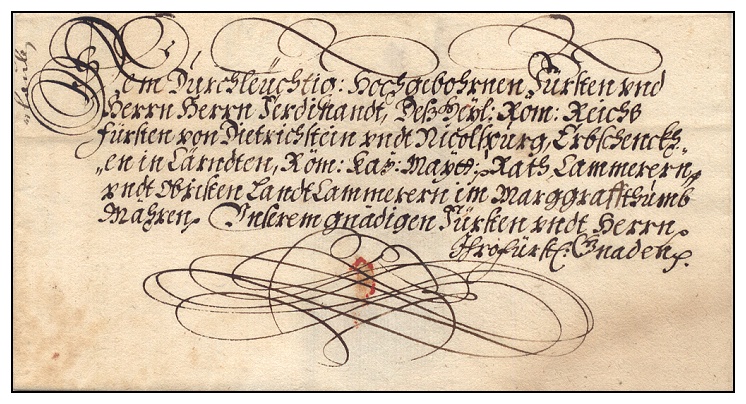 Dem Durchleüchtig: Hochgebohrnen Fürsten vnd
Herrn Herrn Ferdinandt, Deß Heyl: Röm: Reichs
fürsten von Dietrichstein vndt Nicolspurg, Erbschenckh-
„en in Cärndten, Röm: Kay: Maytt: Rath Cammerern,
vndt Obristen Landt Cammerern im Marggraffthumb
Mähren. Vnserem gnädigen Fürsten vndt Herrn.
Ihro fürstl: Gnaden.